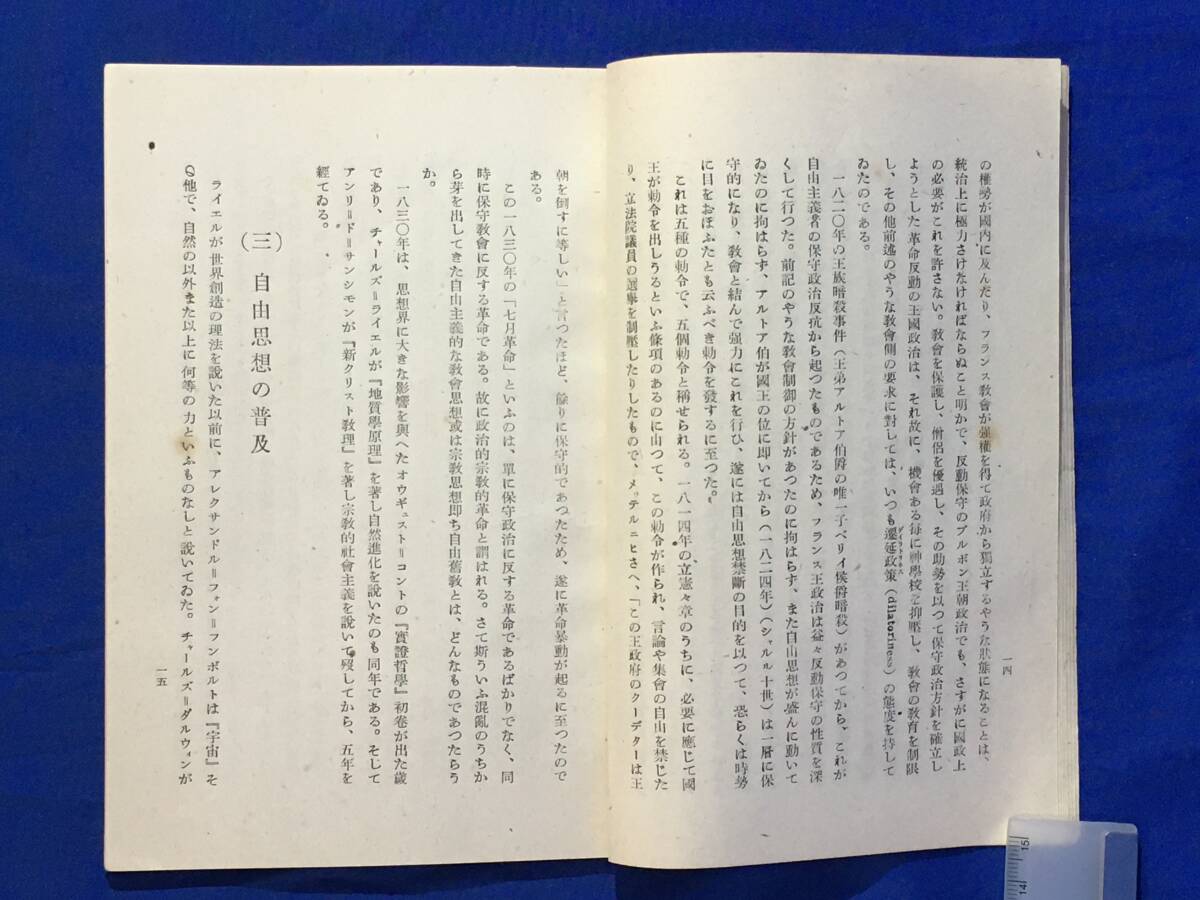 の權勢が國内に及んだり、フランス敎會が强權を得て政府から獨立するやうな狀態になることは、
統治上に極力さけなければならぬこと明かで、反動保守のブルボン王朝政治でも、さすがに國政上
の必要がこれを許さない。敎會を保護し、僧侶を優遇し、その助勢を以つて保守政治方針を確立し
ようとした革命反動の王國政治は、それ故に、機會ある每に神學校を抑壓し、敎會の敎育を制限
し、その他前述のやうな敎會側の要求に對しては、いつも遷延政策（dilatoriness）の態度を持して
ゐたのである。
一八二〇年の王族暗殺事件（王弟アルトア伯爵の唯一子ベリイ侯爵暗殺）があつてから、これが
自由主義者の保守政治反抗から起つたものであるため、フランス王政治は益々反動保守の性質を深
くして行つた。前記のやうな敎會制御の方針があつたのに拘はらず、また自由思想が盛んに動いて
ゐたのに拘はらず、アルトア伯が國王の位に卽いてから（一八二四年）（シャルル十世）は一層に保
守的になり、敎會と結んで强力にこれを行ひ、遂には自由思想禁斷の目的を以つて、恐らくは時勢
に目をおほふたとも云ふべき勅令を發するに至つた。
これは五種の勅令で、五個勅令と稱せられる。一八一四年の立憲々章のうちに、必要に應じて國
王が勅令を出しうるといふ條項のあるのに由つて、この勅令が作られ、言論や集會の自由を禁じた
り、立法院議員の選擧を制壓したりしたもので、メッテルニヒさへ、「この王政府のクーデターは王
一四
朝を倒すに等しい」と言つたほど、餘りに保守的であつたため、遂に革命暴動が起るに至つたので
ある。
この一八三〇年の「七月革命」といふのは、單に保守政治に反する革命であるばかりでなく、同
時に保守敎會に反する革命である。故に政治的宗敎的革命と謂はれる。さて斯ういふ混亂のうちか
ら芽を出してきた自由主義的な敎會思想或は宗敎思想卽ち自由舊敎とは、どんなものであつたらう
か。
一八三〇年は、思想界に大きな影響を與へたオウギュスト＝コントの『實證哲學』初卷が出た歲
であり、チャールズ＝ライエルが『地質學原理』を著し自然進化を說いたのも同年である。そして
アンリ＝ド＝サンシモンが『新クリスト敎理』を著し宗敎的社會主義を說いて歿してから、五年を
經てゐる。
（三）　自由思想の普及
ライエルが世界創造の理法を說いた以前に、アレクサンドル＝フォン＝フンボルトは『宇宙』そ
の他で、自然の以外また以上に何等の力といふものなしと說いてゐた。チャールズ＝ダルウィンが
一五
15
14